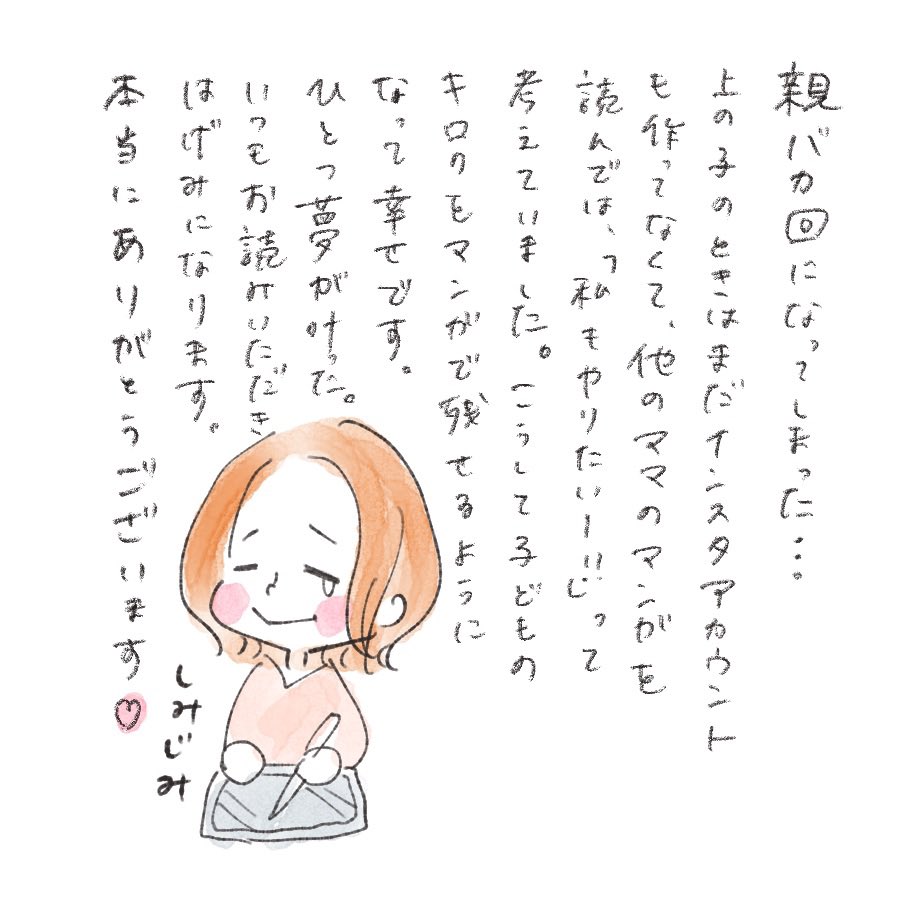 親バカ回になってしまった…。
上の子のときはまだインスタアカウント
も作ってなくて、他のママのマンガを
読んでは、「私もやりたいー!!」って
考えていました。こうして子どもの
キロクをマンガで残せるように
なって幸せです。
ひとつ夢が叶った。
いつもお読みいただき
はげみになります。
本当にありがとうございます♡
しみじみ